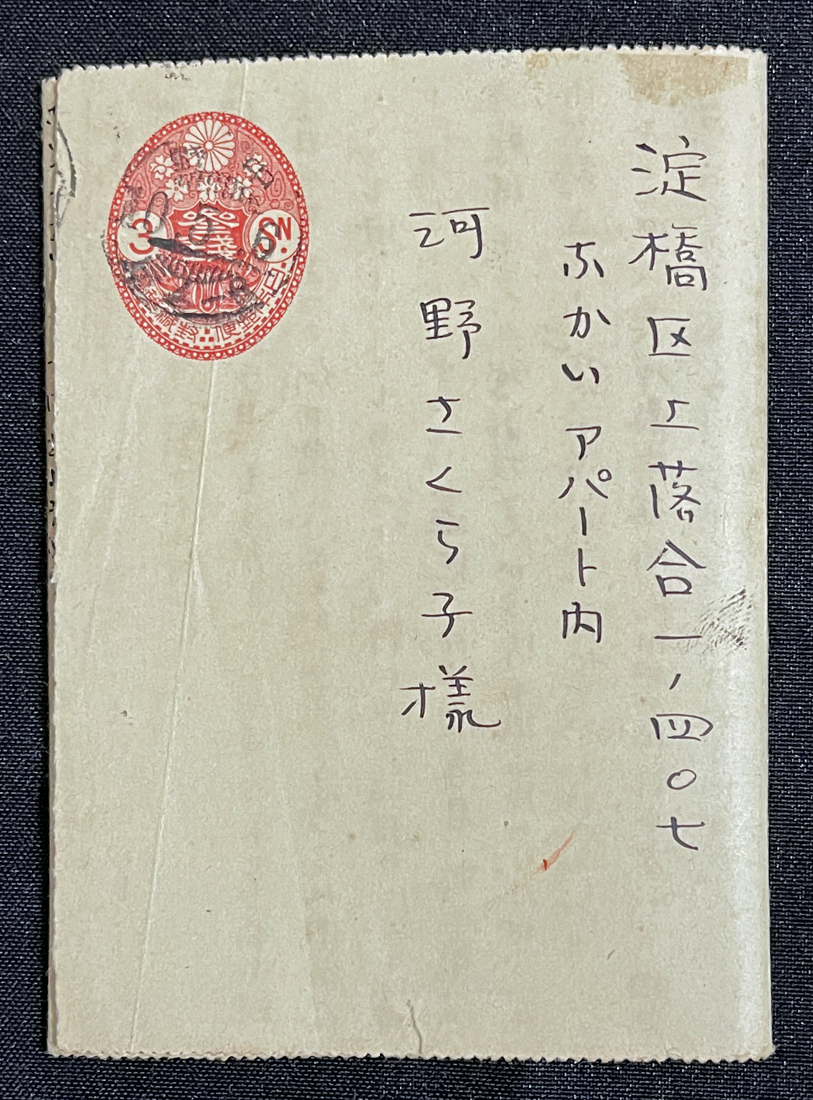 淀橋区上落合一ノ四〇七
ふかいアパート内
河野さくら子様
3 SN.